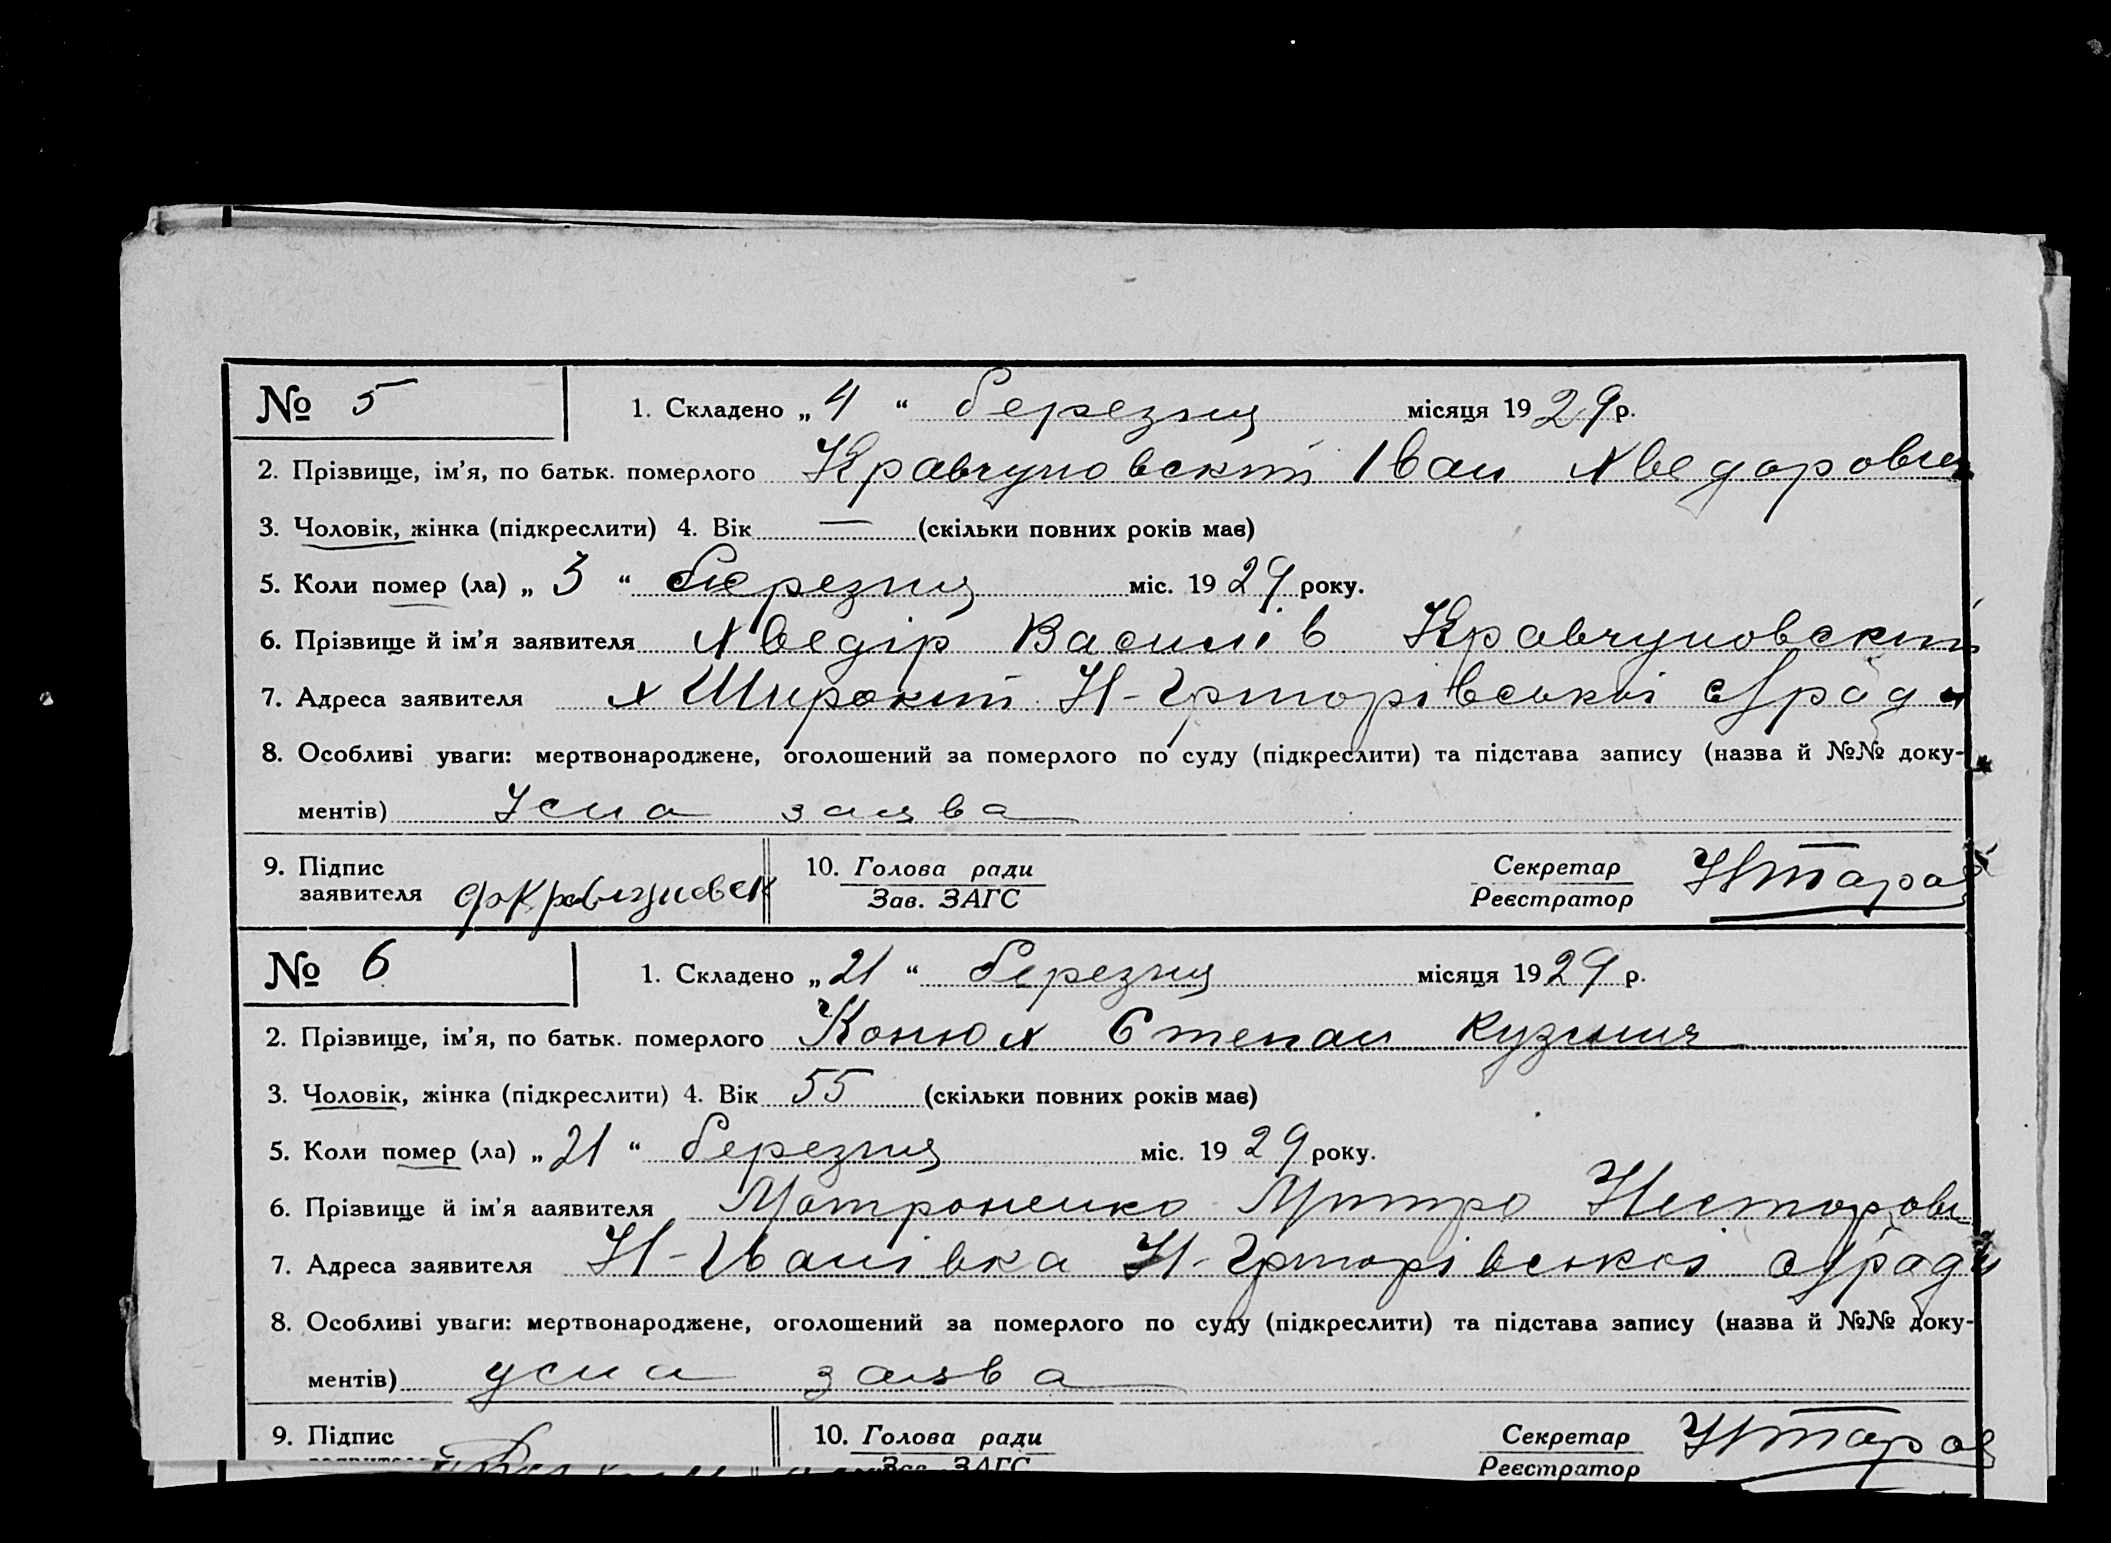 № 5 1. Складено „ 4 “ березня місяця 1929 р.
2. Прізвище, ім’я, по батьк. померлого Кравчуновский Іван Хведорович
3. Чоловік, жінка (підкреслити) 4. Вік — (скільки повних років має)
5. Коли помер (ла) „ 3 “ березня міс. 1929 року.
6. Прізвище й ім’я заявителя Хведір Василів Кравчуновский
7. Адреса заявителя х Широкий Н-Григорівськоі с/ради
8. Особливі уваги: мертвонароджене, оголошений за померлого по суду (підкреслити) та підстава запису (назва й №№ доку-
ментів) Усна заява
9. Підпис 10. Голова ради Секретар
заявителя Зав. ЗАГС Реєстратор
№ 6 1. Складено „ 21 “ березня місяця 1929 р.
2. Прізвище, ім’я, по батьк. померлого Конюх Степан Кузьмич
3. Чоловік, жінка (підкреслити) 4. Вік 55 (скільки повних років має)
5. Коли помер (ла) „ 21 “ березня міс. 1929 року.
6. Прізвище й ім’я ааявителя Мотроненко Митро Несторов
7. Адреса заявителя Н-Іванівка Н-Григорівськоі с/ради
8. Особливі уваги: мертвонароджене, оголошений за померлого по суду (підкреслити) та підстава запису (назва й №№ доку-
ментів) усна заява
9. Підпис 10. Голова ради Секретар
Зав. ЗАГС Реєстратор